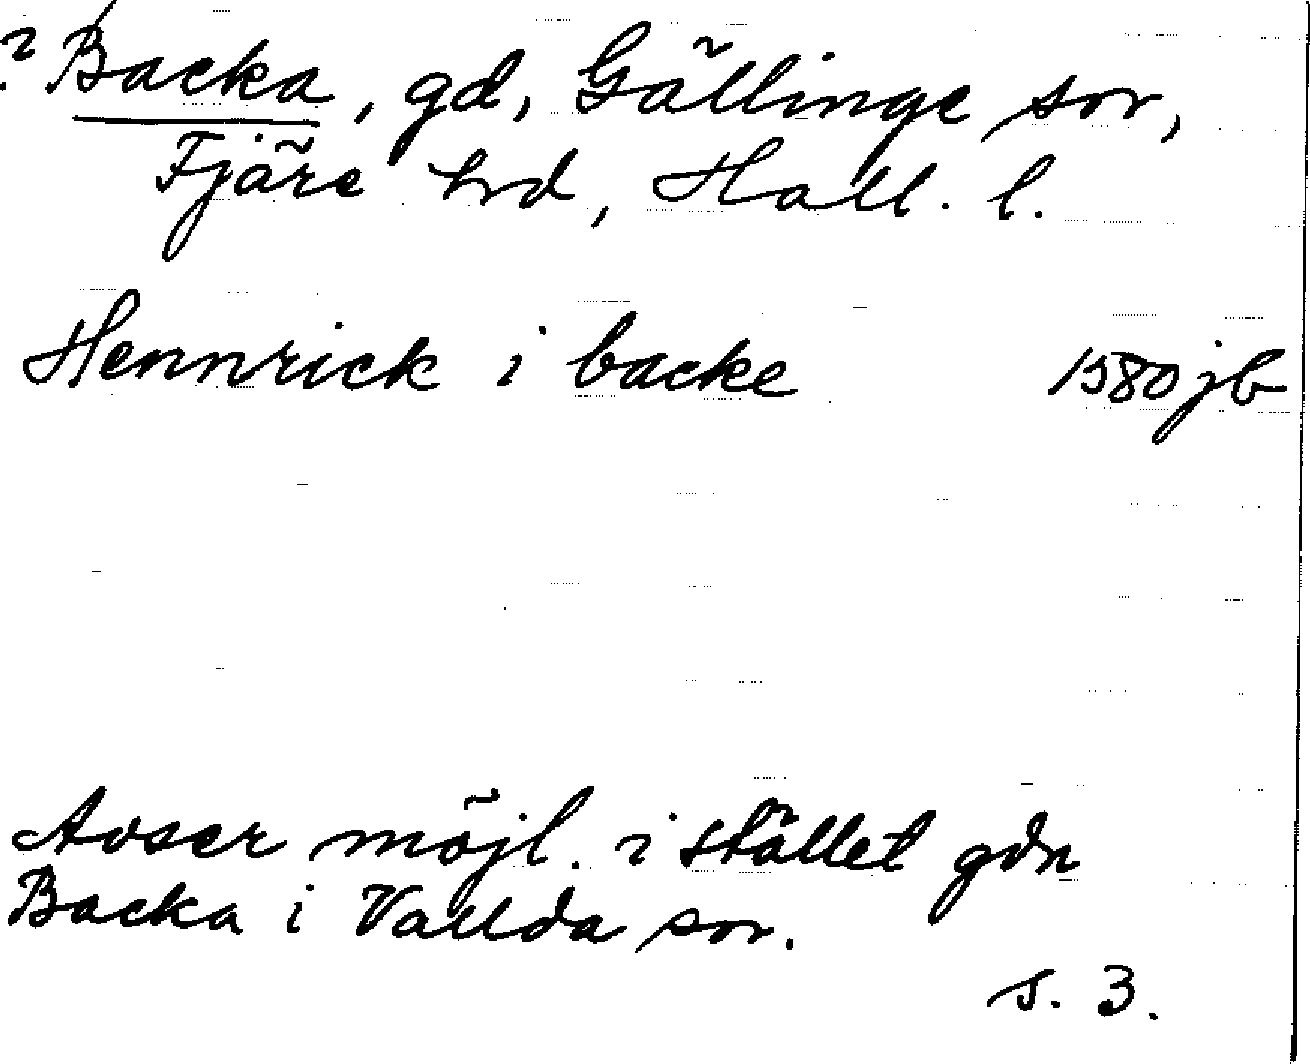 ? Backa, gd, Gällinge sn,
Fjäre hd, Hall. l.
Hennrick i backe 1580 jb
Avser möjl. i stället gdn
Backa i Vallda sn.
s. 3.